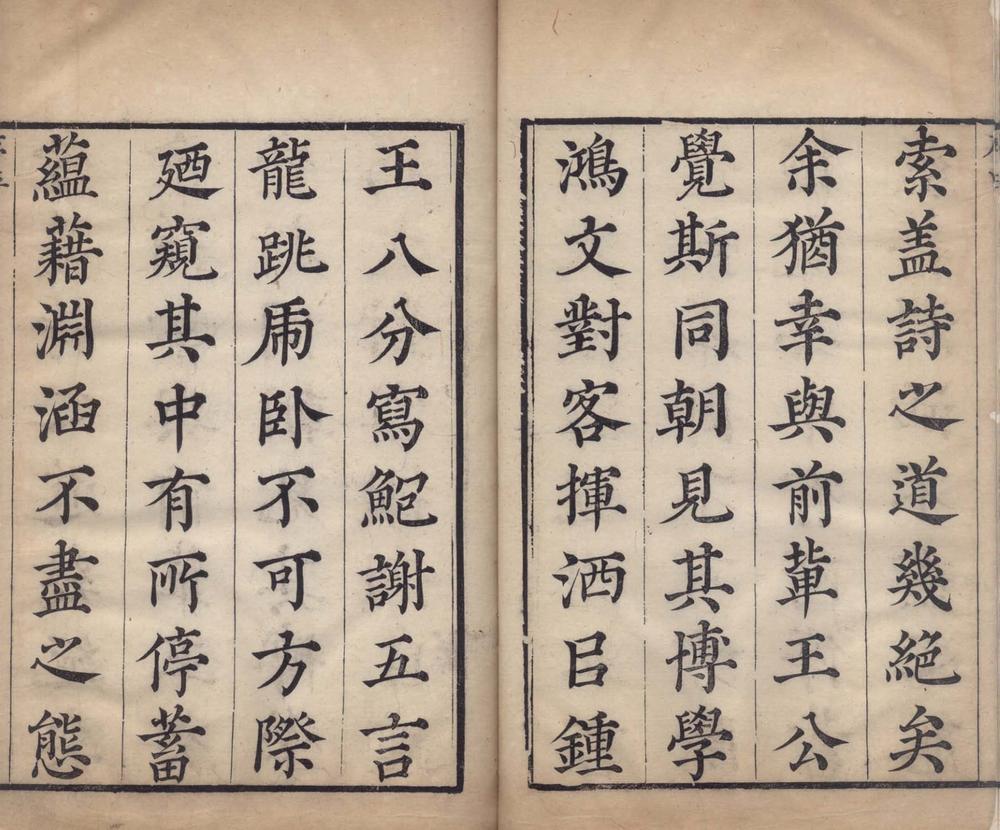 索盖詩之道幾絕矣
余猶幸與前軰王公
覺斯同朝見其博學
鴻文對客揮洒㠯鍾
王八分寫鮑謝五言
龍跳虎卧不可方際
廼窺其中有所停蓄
蘊藉淵涵不盡之態